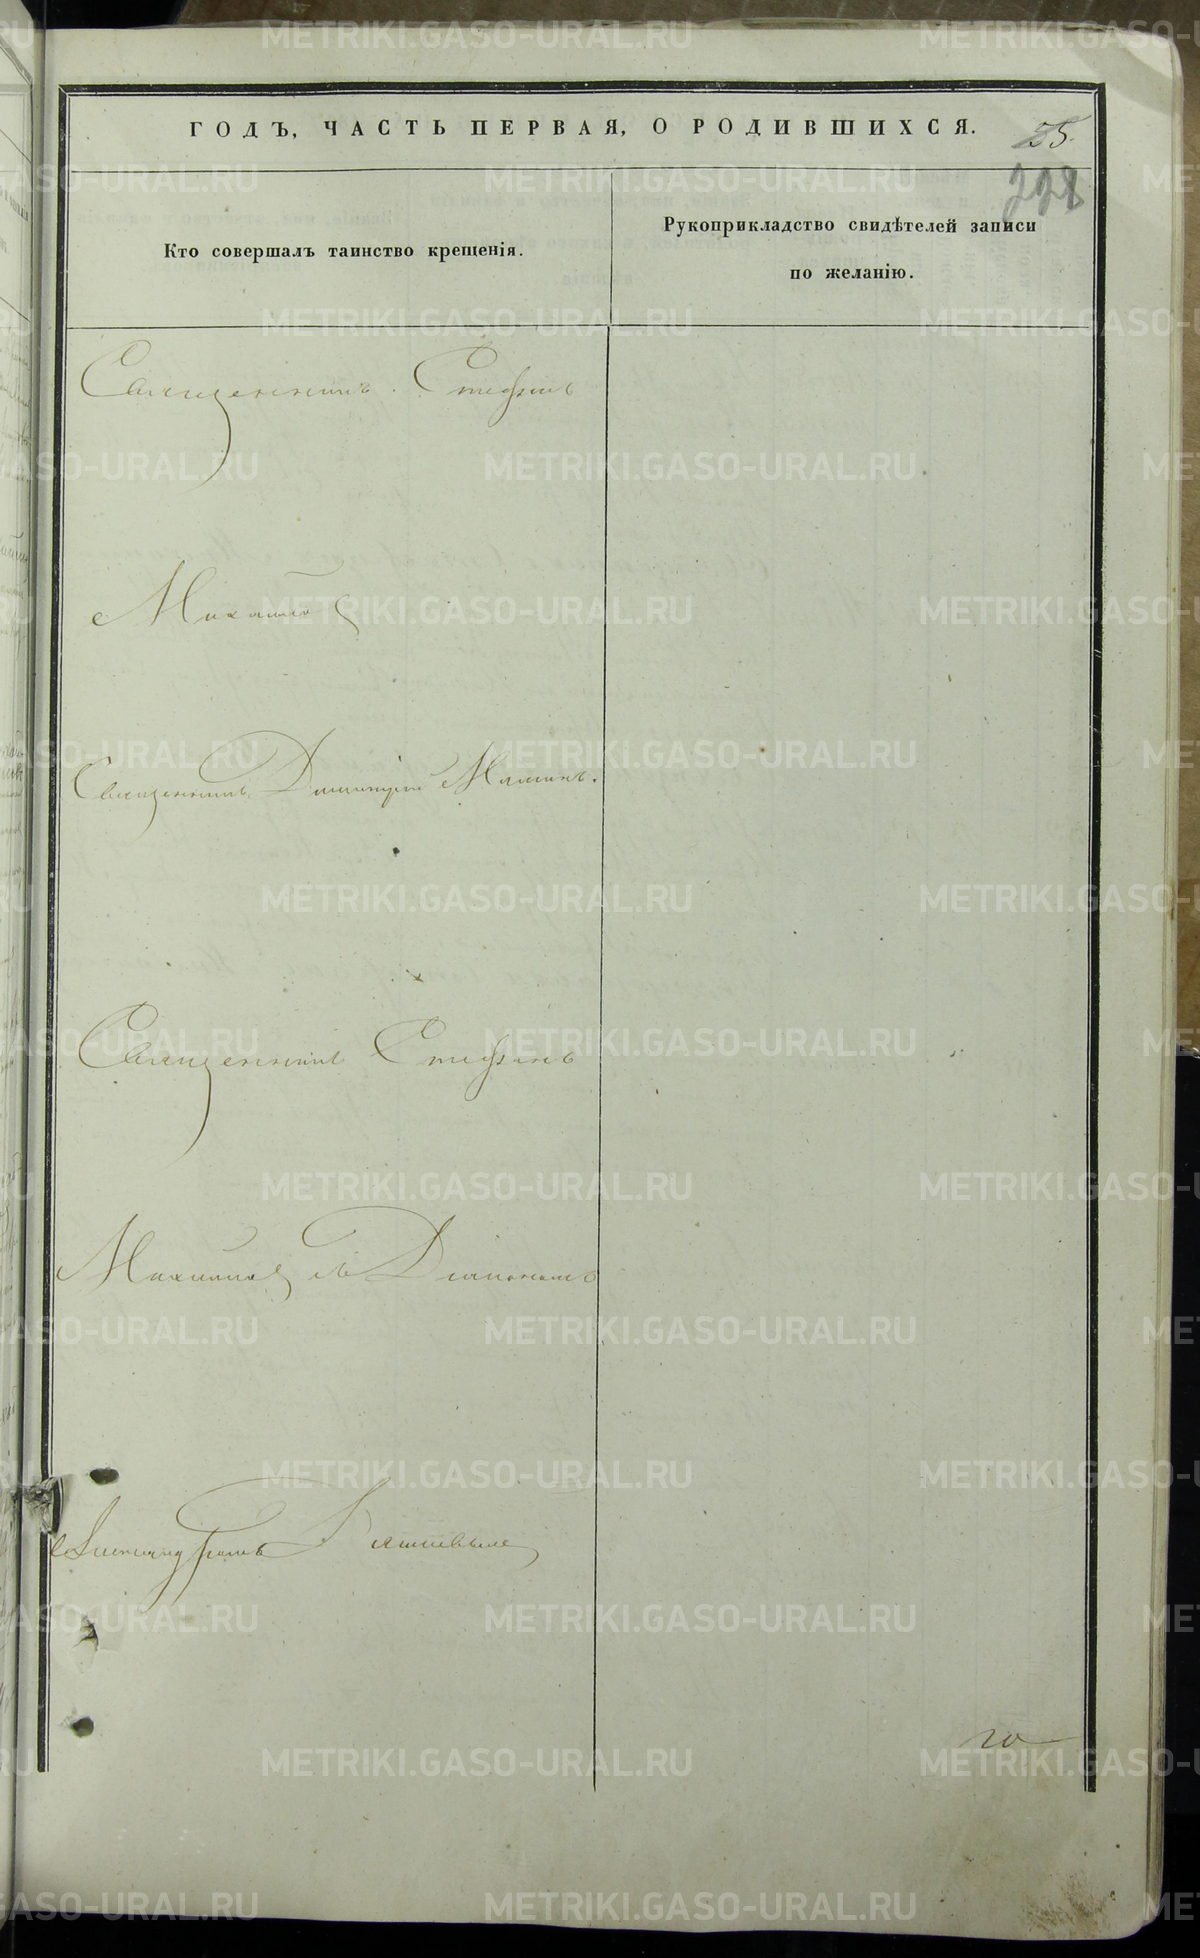 ГОДЪ, ЧАСТЬ ПЕРВАЯ, О РОДИВШИХСЯ.
55.
228
Кто совершалъ таинство крещенія.
Рукоприкладство свидѣтелей записи
по желанію.
Священникъ Стефанъ
Михайловъ
Священникъ Димитрій Маминъ.
Священникъ Стефанъ
Михайловъ съ Діакономъ
Александромъ
го
METRIKI.GASO-URAL.RU